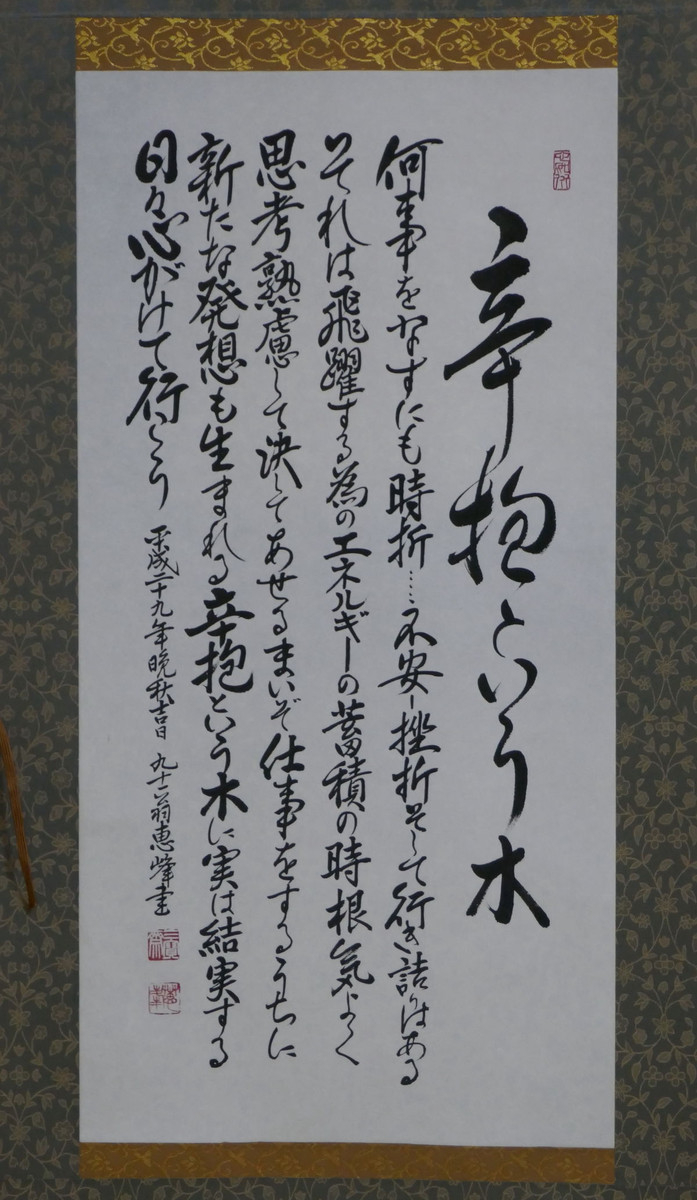 辛抱という木
何事をなすにも時折…不安ー挫折そして行き詰りはある
それは飛躍する為のエネルギーの蓄積の時根気よく
思考熟慮して決してあせるまいぞ仕事をするうちに
新たな発想も生まれる辛抱という木に実は結実する
日々心がけて行こう
平成二十九年晩秋吉日 九十六翁恵峰書